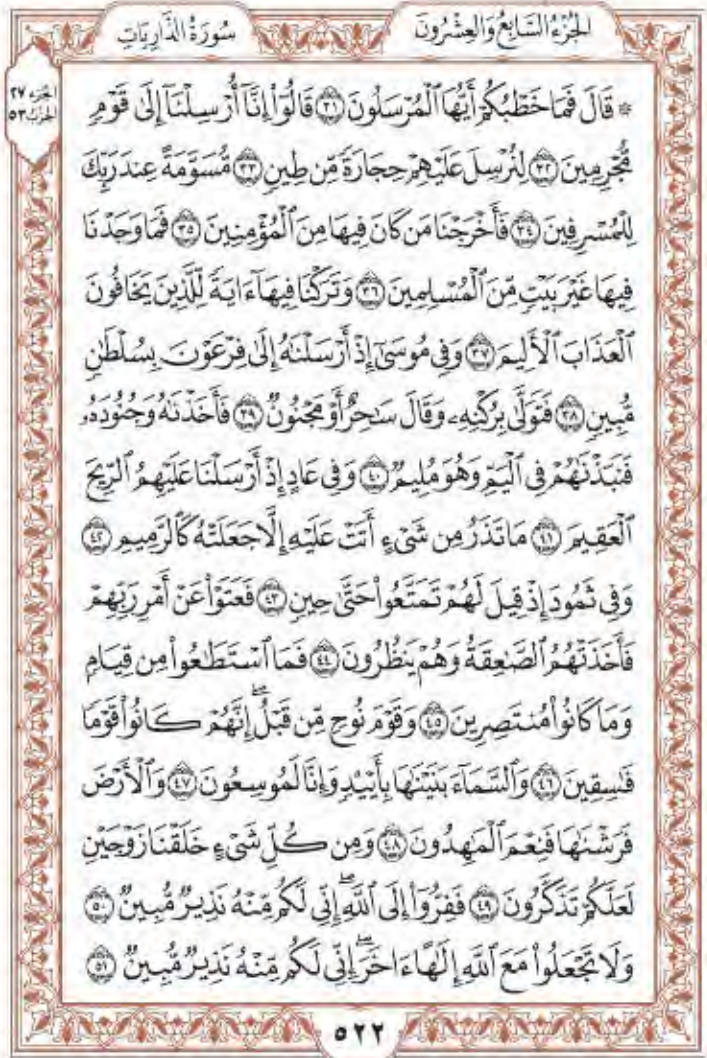 سُورَةُ الذَّارِيَاتِ
الجُزْءُ السَّابِعُ وَالعِشْرُونَ
الجزء ٢٧
الحزب ٥٣
۞ قَالَ فَمَا خَطْبُكُمْ أَيُّهَا ٱلْمُرْسَلُونَ ٣١ قَالُوٓاْ إِنَّآ أُرْسِلْنَآ إِلَىٰ قَوْمٍ
مُّجْرِمِينَ ٣٢ لِنُرْسِلَ عَلَيْهِمْ حِجَارَةً مِّن طِينٍ ٣٣ مُّسَوَّمَةً عِندَ رَبِّكَ
لِلْمُسْرِفِينَ ٣٤ فَأَخْرَجْنَا مَن كَانَ فِيهَا مِنَ ٱلْمُؤْمِنِينَ ٣٥ فَمَا وَجَدْنَا
فِيهَا غَيْرَ بَيْتٍ مِّنَ ٱلْمُسْلِمِينَ ٣٦ وَتَرَكْنَا فِيهَآ ءَايَةً لِّلَّذِينَ يَخَافُونَ
ٱلْعَذَابَ ٱلْأَلِيمَ ٣٧ وَفِى مُوسَىٰٓ إِذْ أَرْسَلْنَٰهُ إِلَىٰ فِرْعَوْنَ بِسُلْطَٰنٍ
مُّبِينٍ ٣٨ فَتَوَلَّىٰ بِرُكْنِهِۦ وَقَالَ سَٰحِرٌ أَوْ مَجْنُونٌ ٣٩ فَأَخَذْنَٰهُ وَجُنُودَهُۥ
فَنَبَذْنَٰهُمْ فِى ٱلْيَمِّ وَهُوَ مُلِيمٌ ٤٠ وَفِى عَادٍ إِذْ أَرْسَلْنَا عَلَيْهِمُ ٱلرِّيحَ
ٱلْعَقِيمَ ٤١ مَا تَذَرُ مِن شَىْءٍ أَتَتْ عَلَيْهِ إِلَّا جَعَلَتْهُ كَٱلرَّمِيمِ ٤٢
وَفِى ثَمُودَ إِذْ قِيلَ لَهُمْ تَمَتَّعُواْ حَتَّىٰ حِينٍ ٤٣ فَعَتَوْاْ عَنْ أَمْرِ رَبِّهِمْ
فَأَخَذَتْهُمُ ٱلصَّٰعِقَةُ وَهُمْ يَنظُرُونَ ٤٤ فَمَا ٱسْتَطَٰعُواْ مِن قِيَامٍ
وَمَا كَانُواْ مُنتَصِرِينَ ٤٥ وَقَوْمَ نُوحٍ مِّن قَبْلُ ۖ إِنَّهُمْ كَانُواْ قَوْمًا
فَٰسِقِينَ ٤٦ وَٱلسَّمَآءَ بَنَيْنَٰهَا بِأَيْي۟دٍ وَإِنَّا لَمُوسِعُونَ ٤٧ وَٱلْأَرْضَ
فَرَشْنَٰهَا فَنِعْمَ ٱلْمَٰهِدُونَ ٤٨ وَمِن كُلِّ شَىْءٍ خَلَقْنَا زَوْجَيْنِ
لَعَلَّكُمْ تَذَكَّرُونَ ٤٩ فَفِرُّوٓاْ إِلَى ٱللَّهِ ۖ إِنِّى لَكُم مِّنْهُ نَذِيرٌ مُّبِينٌ ٥٠
وَلَا تَجْعَلُواْ مَعَ ٱللَّهِ إِلَٰهًا ءَاخَرَ ۖ إِنِّى لَكُم مِّنْهُ نَذِيرٌ مُّبِينٌ ٥١
٥٢٢